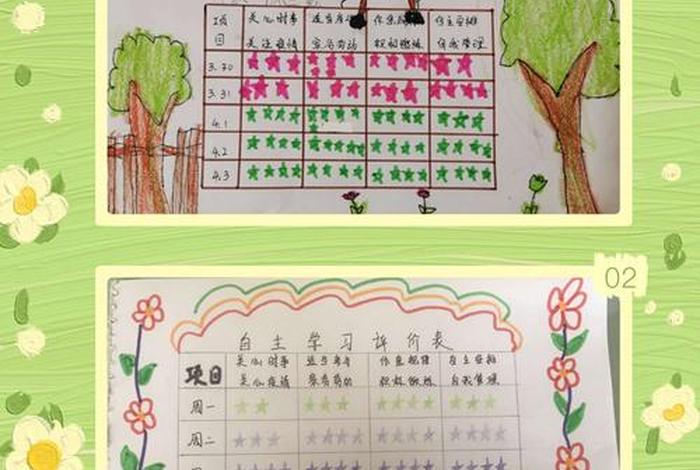 项 关心时事 作息规律 自主安排
目 关注疫情 家务劳动 积极锻炼 自我管理
3.30
3.31
4.1
4.2
4.3
02
自主学习评价表
项目 关心时事 作息规律 自主安排
关心疫情 家务劳动 积极锻炼 自我管理
周一
周二